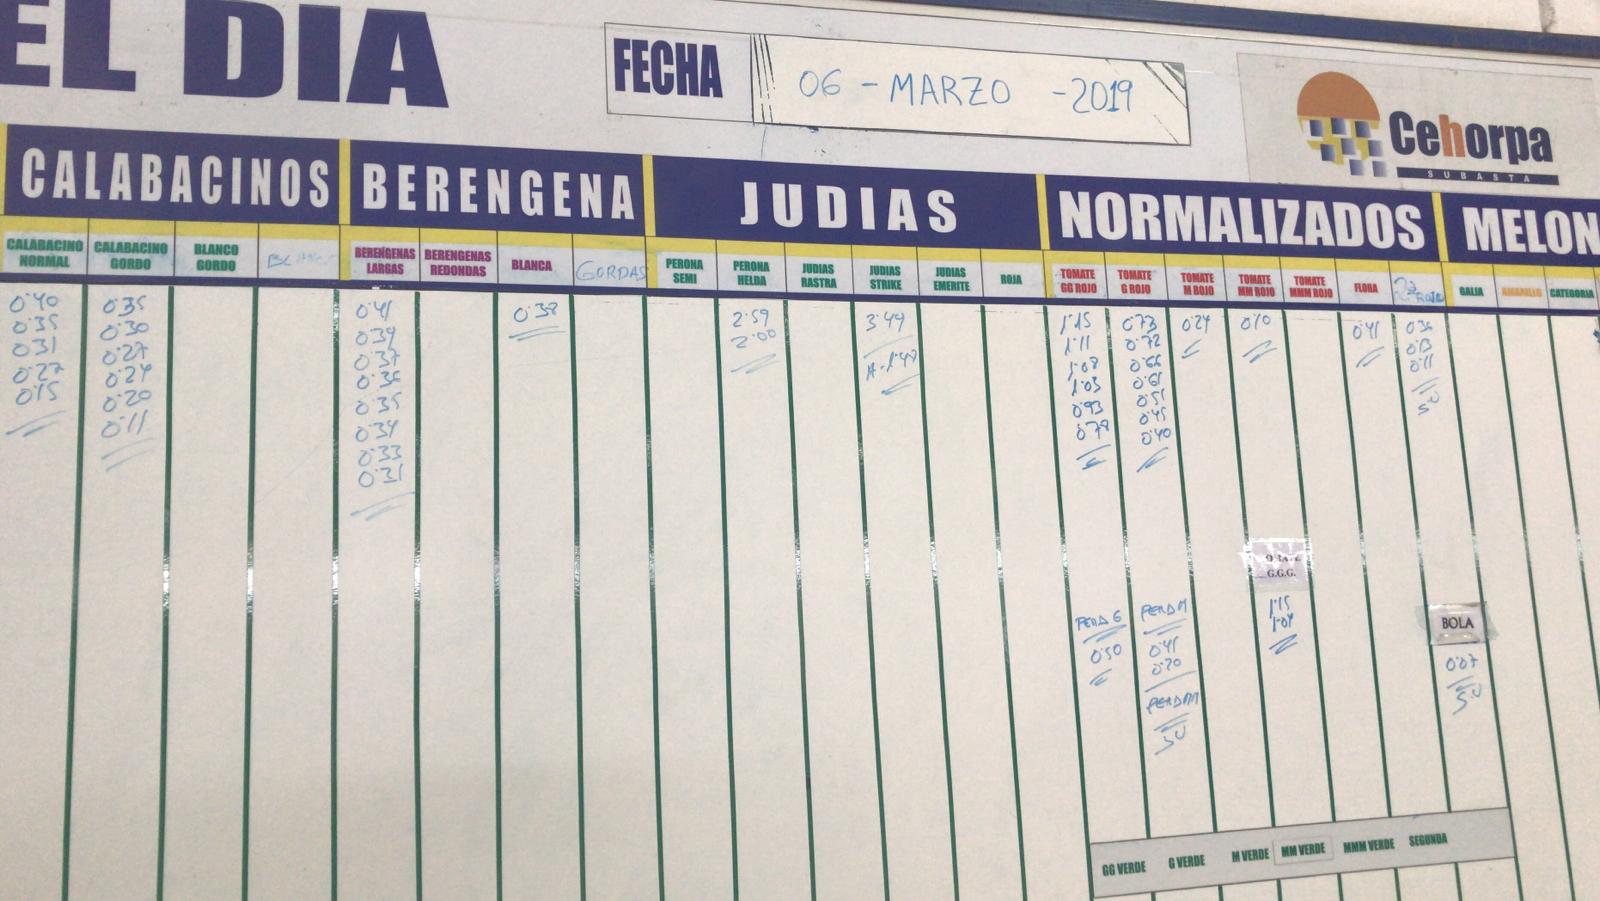 EL DIA
FECHA
06 - MARZO - 2019
Cehorpa
SUBASTA
CALABACINOS
BERENGENA
JUDIAS
NORMALIZADOS
MELON
CALABACINO NORMAL
CALABACINO GORDO
BLANCO GORDO
BERENGENAS LARGAS
BERENGENAS REDONDAS
BLANCA
GORDAS
PERONA SEMI
PERONA HELDA
JUDIAS RASTRA
JUDIAS STRIKE
JUDIAS EMERITE
ROJA
TOMATE GG ROJO
TOMATE G ROJO
TOMATE M ROJO
TOMATE MM ROJO
TOMATE MMM ROJO
FLORA
GALIA
AMARILLO
CATEGORIA
0'40
0'35
0'31
0'27
0'15
0'35
0'30
0'27
0'24
0'20
0'11
0'41
0'39
0'37
0'36
0'35
0'34
0'33
0'31
0'38
2'59
2'00
3'49
1'15
1'11
1'08
1'03
0'93
0'79
0'73
0'72
0'66
0'61
0'51
0'45
0'40
0'24
0'10
0'41
0'13
0'11
G.G.G.
1'15
PERA G
0'50
PERA M
0'41
0'20
BOLA
0'07
GG VERDE
G VERDE
M VERDE
MM VERDE
MMM VERDE
SEGUNDA